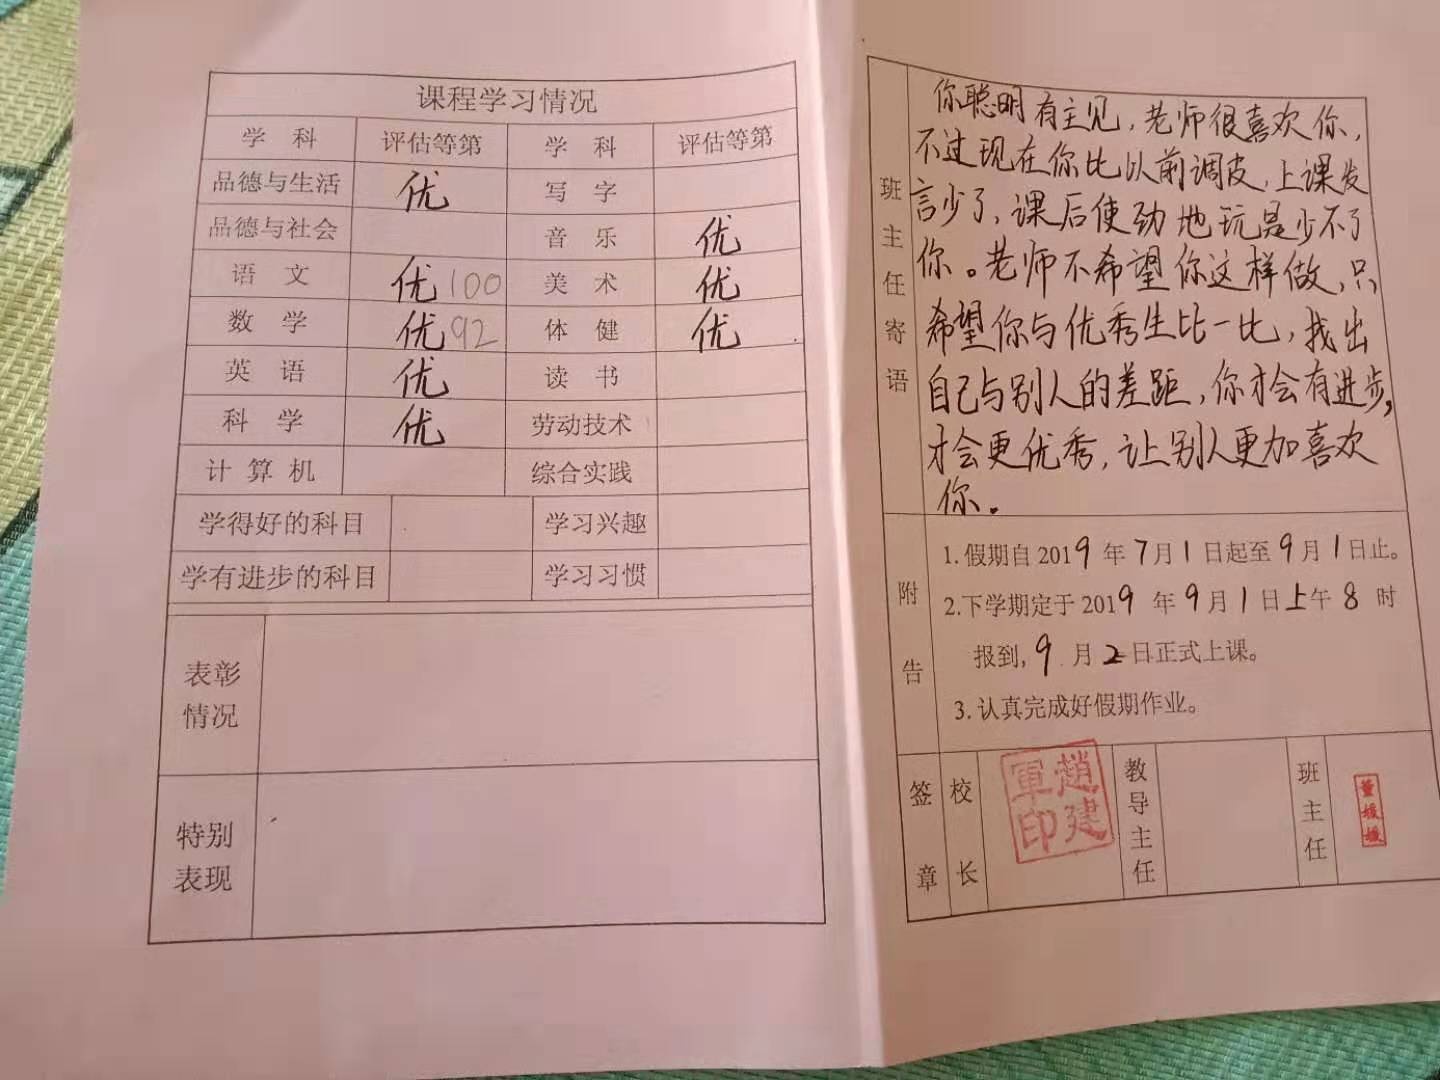 课程学习情况
学 科 评估等第 学 科 评估等第
品德与生活 优 写 字
品德与社会 音 乐 优
语 文 优 100 美 术 优
数 学 优 92 体 健 优
英 语 优 读 书
科 学 优 劳动技术
计 算 机 综合实践
学得好的科目 学习兴趣
学有进步的科目 学习习惯
表彰情况
特别表现
班主任寄语
你聪明有主见，老师很喜欢你，
不过现在你比以前调皮，上课发
言少了，课后使劲地玩是少不了
你。老师不希望你这样做，只
希望你与优秀生比一比，找出
自己与别人的差距，你才会有进步，
才会更优秀，让别人更加喜欢
你。
附告
1.假期自2019年7月1日起至9月1日止。
2.下学期定于2019年9月1日上午8时
报到，9月2日正式上课。
3.认真完成好假期作业。
签章 校长 趙建軍印 教导主任 班主任 董媛媛